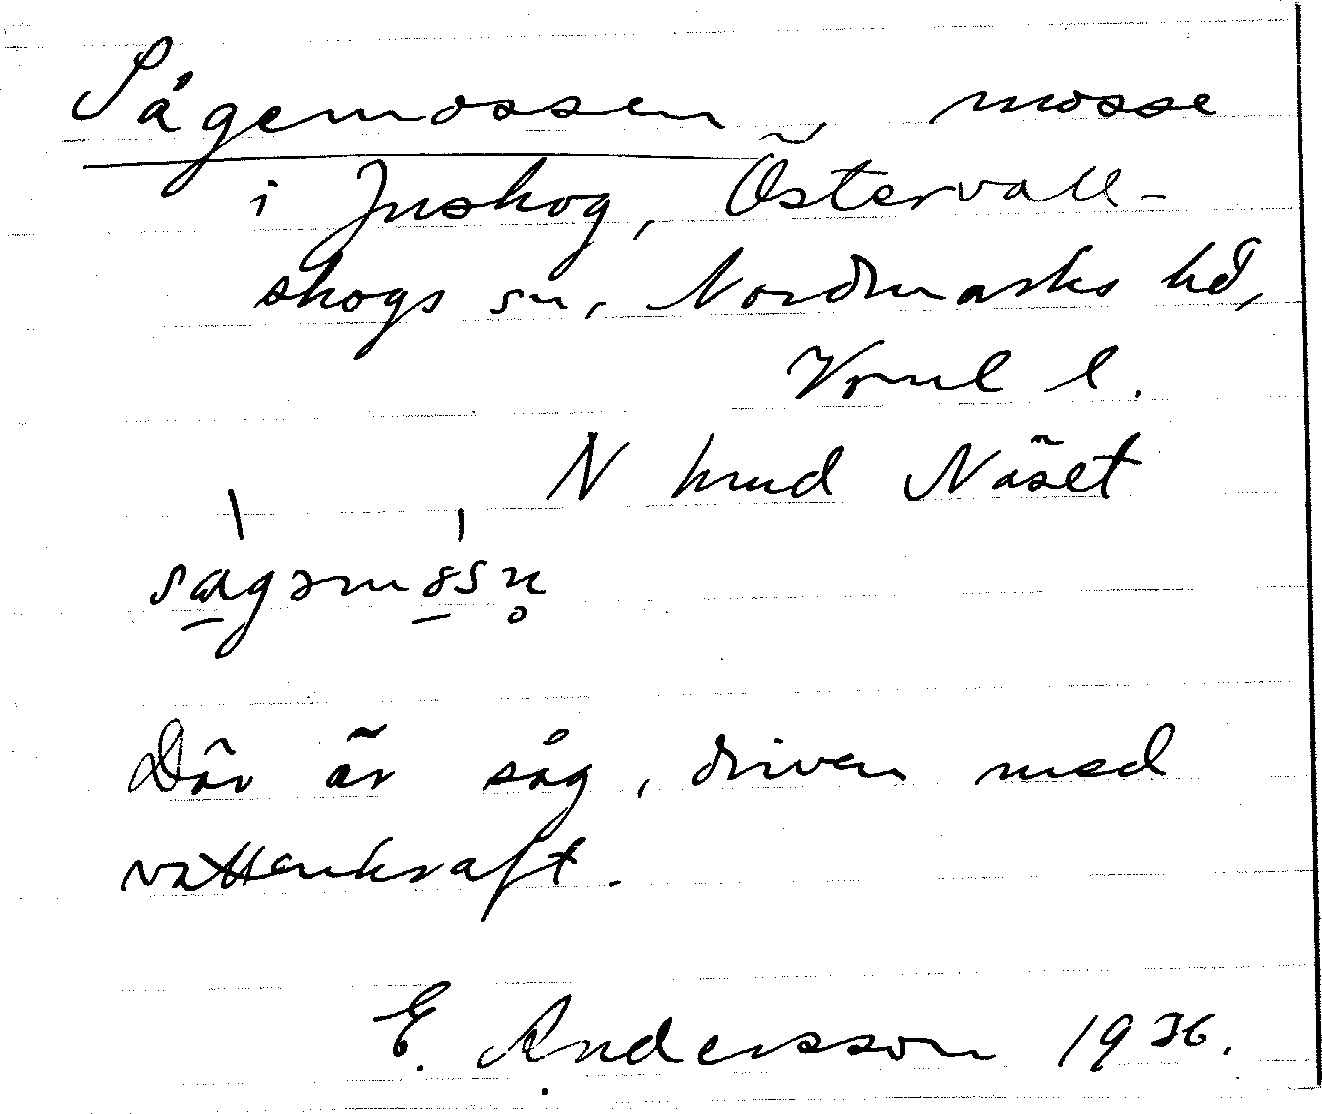 Sågemossen, mosse
i Juskog, Östervall-
skogs sn, Nordmarks hd,
Vrml l.
N hmd Näset
Där är såg, driven med
vattenkraft.
E. Andersson 1936.